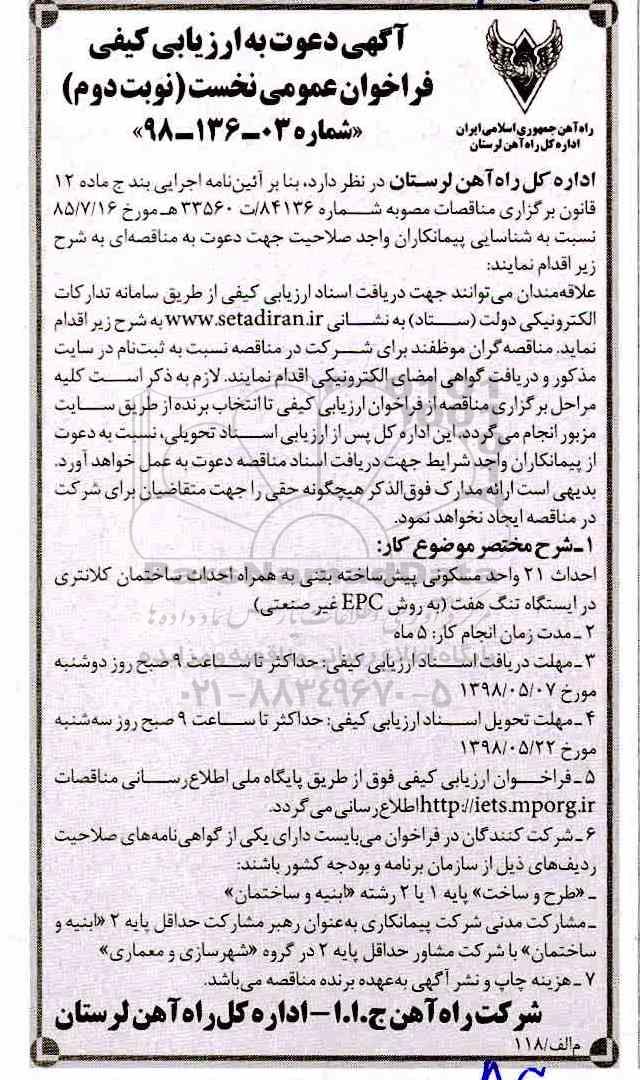 آگهی دعوت به ارزیابی کیفی
فراخوان عمومی نخست (نوبت دوم)
«شماره ۰۳-۱۳۶-۹۸»
راه‌آهن جمهوری اسلامی ایران
اداره کل راه‌آهن لرستان
اداره کل راه‌آهن لرستان در نظر دارد، بنا بر آئین‌نامه اجرایی بند ج ماده ۱۲
قانون برگزاری مناقصات مصوبه شماره ۸۴۱۳۶/ت ۳۳۵۶۰ هـ مورخ ۸۵/۷/۱۶
نسبت به شناسایی پیمانکاران واجد صلاحیت جهت دعوت به مناقصه‌ای به شرح
زیر اقدام نمایند:
علاقه‌مندان می‌توانند جهت دریافت اسناد ارزیابی کیفی از طریق سامانه تدارکات
الکترونیکی دولت (ستاد) به نشانی www.setadiran.ir به شرح زیر اقدام
نماید. مناقصه‌گران موظفند برای شرکت در مناقصه نسبت به ثبت‌نام در سایت
مذکور و دریافت گواهی امضای الکترونیکی اقدام نمایند. لازم به ذکر است کلیه
مراحل برگزاری مناقصه از فراخوان ارزیابی کیفی تا انتخاب برنده از طریق سایت
مزبور انجام می‌گردد. این اداره کل پس از ارزیابی اسناد تحویلی، نسبت به دعوت
از پیمانکاران واجد شرایط جهت دریافت اسناد مناقصه دعوت به عمل خواهد آورد.
بدیهی است ارائه مدارک فوق‌الذکر هیچگونه حقی را جهت متقاضیان برای شرکت
در مناقصه ایجاد نخواهد نمود.
۱-شرح مختصر موضوع کار:
احداث ۲۱ واحد مسکونی پیش‌ساخته بتنی به همراه احداث ساختمان کلانتری
در ایستگاه تنگ هفت (به روش EPC غیر صنعتی)
۲-مدت زمان انجام کار: ۵ ماه
۳-مهلت دریافت اسناد ارزیابی کیفی: حداکثر تا ساعت ۹ صبح روز دوشنبه
مورخ ۱۳۹۸/۰۵/۰۷
۴-مهلت تحویل اسناد ارزیابی کیفی: حداکثر تا ساعت ۹ صبح روز سه‌شنبه
مورخ ۱۳۹۸/۰۵/۲۲
۵-فراخوان ارزیابی کیفی فوق از طریق پایگاه ملی اطلاع‌رسانی مناقصات
http://iets.mporg.ir اطلاع‌رسانی می‌گردد.
۶-شرکت کنندگان در فراخوان می‌بایست دارای یکی از گواهی‌نامه‌های صلاحیت
ردیف‌های ذیل از سازمان برنامه و بودجه کشور باشند:
-«طرح و ساخت» پایه ۱ یا ۲ رشته «ابنیه و ساختمان»
-مشارکت مدنی شرکت پیمانکاری به‌عنوان رهبر مشارکت حداقل پایه ۲ «ابنیه و
ساختمان» با شرکت مشاور حداقل پایه ۲ در گروه «شهرسازی و معماری»
۷-هزینه چاپ و نشر آگهی به‌عهده برنده مناقصه می‌باشد.
شرکت راه‌آهن ج.ا.ا - اداره کل راه‌آهن لرستان
م‌الف/۱۱۸
ParsNamadData
۰۲۱-۸۸۳۴۹۶۷۰-۵